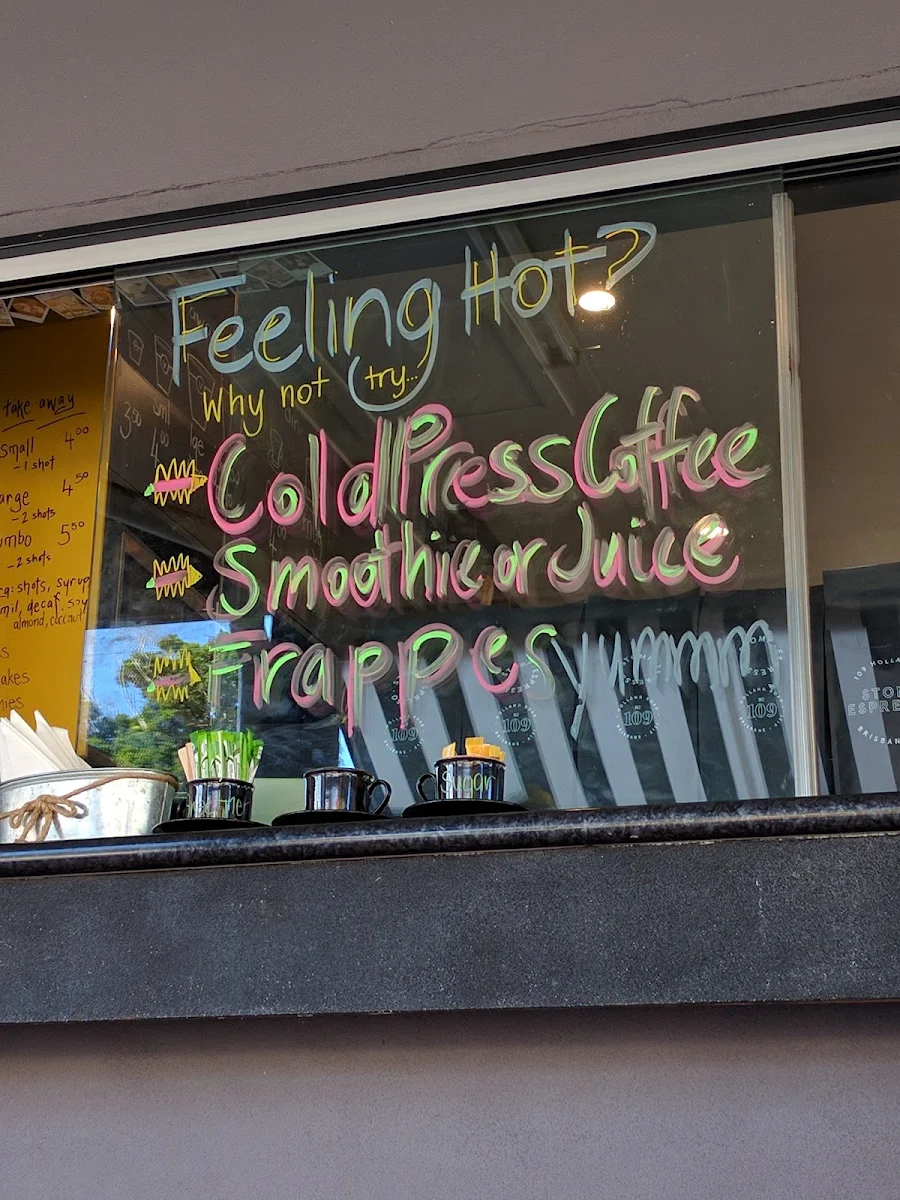 Feeling Hot?
Why not try...
ColdPress Coffee
Smoothie or Juice
Frappes yummm
take away
small 4.00
-1 shot
4.50
-2 shots
5.50
-2 shots
shots, syrup
decaf, soy
almond, coconut
Sugar
109
109
109
109
BRISBANE
109 HOLLA
ESPRE
BRISBAN